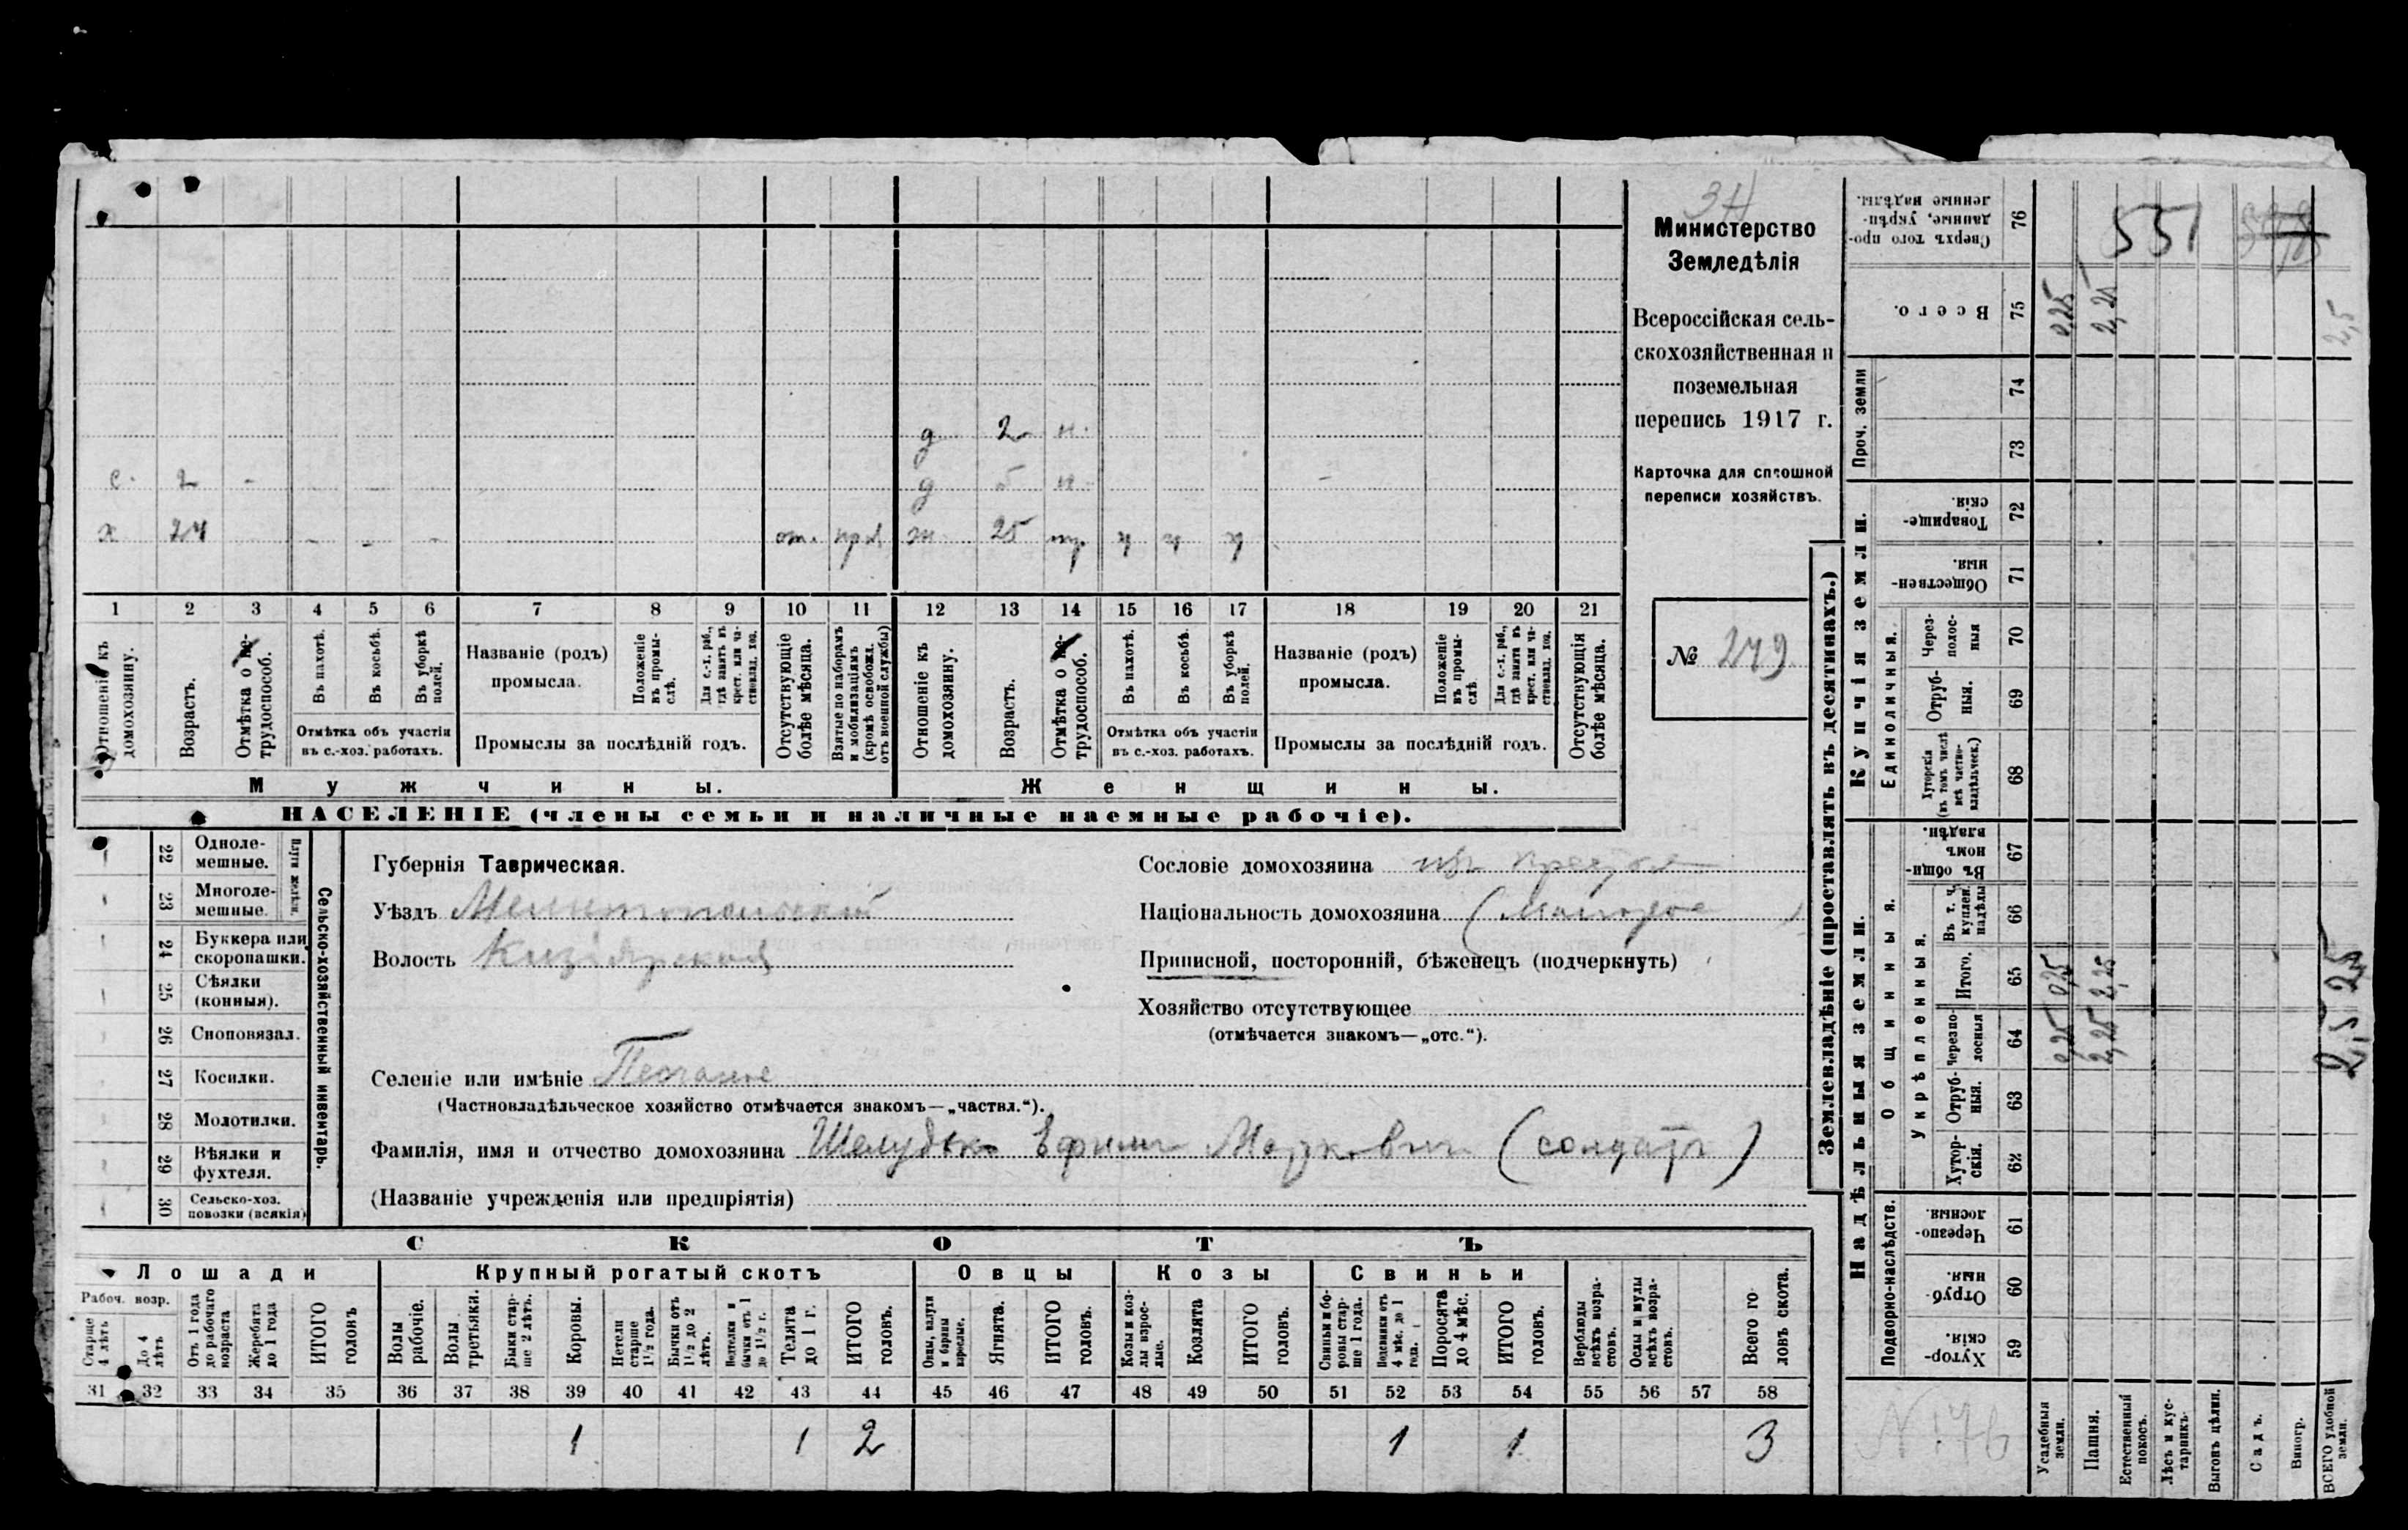 Министерство
Земледѣлія
Всероссійская сель-
скохозяйственная и
поземельная
перепись 1917 г.
Карточка для сплошной
переписи хозяйствъ.
№ 249
д 2 н.
с. 2 - д 5 н.
х 24 от. ж 25 тр
1 2 3 4 5 6 7 8 9 10 11 12 13 14 15 16 17 18 19 20 21
Отношеніе къ домохозяину.
Возрастъ.
Отмѣтка о не-трудоспособ.
Въ пахотѣ.
Въ косьбѣ.
Въ уборкѣ полей.
Отмѣтка объ участіи
въ с.-хоз. работахъ.
Названіе (родъ)
промысла.
Положеніе въ промы-слѣ.
Для с.-х. раб., гдѣ занятъ въ крест. или ча-стновлад. хоз.
Промыслы за послѣдній годъ.
Отсутствующіе болѣе мѣсяца.
Взятые по наборамъ и мобилизаціямъ (кромѣ освобожд. отъ военной службы)
Отношеніе къ домохозяину.
Возрастъ.
Отмѣтка о не-трудоспособ.
Въ пахотѣ.
Въ косьбѣ.
Въ уборкѣ полей.
Отмѣтка объ участіи
въ с.-хоз. работахъ.
Названіе (родъ)
промысла.
Положеніе въ промы-слѣ.
Для с.-х. раб., гдѣ занята въ крест. или ча-стновлад. хоз.
Промыслы за послѣдній годъ.
Отсутствующія болѣе мѣсяца.
Мужчины. Женщины.
НАСЕЛЕНІЕ (члены семьи и наличные наемные рабочіе).
Сельско-хозяйственный инвентарь.
Плуги желѣзн.
22 Одноле-мешные.
23 Многоле-мешные.
24 Буккера или скоропашки.
25 Сѣялки (конныя).
26 Сноповязал.
27 Косилки.
28 Молотилки.
29 Вѣялки и фухтеля.
30 Сельско-хоз. повозки (всякія)
Губернія Таврическая.
Уѣздъ Мелитопольскій
Волость Кизіярская
Сословіе домохозяина
Національность домохозяина (Малоросс )
Приписной, посторонній, бѣженецъ (подчеркнуть)
Хозяйство отсутствующее
(отмѣчается знакомъ—„отс.“).
Селеніе или имѣніе Песчаное
(Частновладѣльческое хозяйство отмѣчается знакомъ—„частвл.“).
Фамилія, имя и отчество домохозяина Шелудько Ефимъ Маркович (солдатъ)
(Названіе учрежденія или предпріятія)
СКОТЪ
Лошади Крупный рогатый скотъ Овцы Козы Свиньи
Рабоч. возр.
Старше 4 лѣтъ
До 4 лѣтъ
Отъ 1 года до рабочаго возраста
Жеребята до 1 года
ИТОГО головъ
Волы рабочіе.
Волы третьяки.
Быки стар-ше 2 лѣтъ.
Коровы.
Нетели старше 1½ года.
Бычки отъ 1½ до 2 лѣтъ.
Нетелки и бычки отъ 1 до 1½ г.
Телята до 1 г.
ИТОГО головъ.
Овцы, валухи и бараны взрослые.
Ягнята.
ИТОГО головъ.
Козы и коз-лы взрос-лые.
Козлята
ИТОГО головъ.
Свиньи и бо-ровы стар-ше 1 года.
Подсвинки отъ 4 мѣс. до 1 года.
Поросята до 4 мѣс.
ИТОГО головъ.
Верблюды всѣхъ возра-стовъ.
Ослы и мулы всѣхъ возра-стовъ.
Всего го-ловъ скота.
31 32 33 34 35 36 37 38 39 40 41 42 43 44 45 46 47 48 49 50 51 52 53 54 55 56 57 58
1 1 2 1 1 3
Землевладѣніе (проставлять въ десятинахъ.)
Сверхъ того про-данные, укрѣп-ленные надѣлы. 76 551
Всего. 75 0,25 2,25 2,5
Проч. земли 74 73
Купчія земли.
Товарище-скія. 72
Обществен-ныя. 71
Единоличныя.
Через-полос-ныя 70
Отруб-ныя. 69
Хуторскія (въ томъ числѣ всѣ частно-владѣльческ.) 68
Надѣльныя земли.
Общинныя.
Въ общи-номъ владѣн. 67
Укрѣпленныя.
Въ т. ч. куплен. надѣлы 66
Итого. 65 0,25 2,25 2,5
Черезпо-лосныя 64 0,25 2,25 2,5
Отруб-ныя. 63
Хутор-скія. 62
Подворно-наслѣдств.
Черезпо-лосныя. 61
Отруб-ныя. 60
Хутор-скія. 59
Усадебныя земли.
Пашня.
Естественный покосъ.
Лѣсъ и кус-тарникъ.
Выгонъ цѣлин.
Садъ.
Виногр.
ВСЕГО удобной земли.